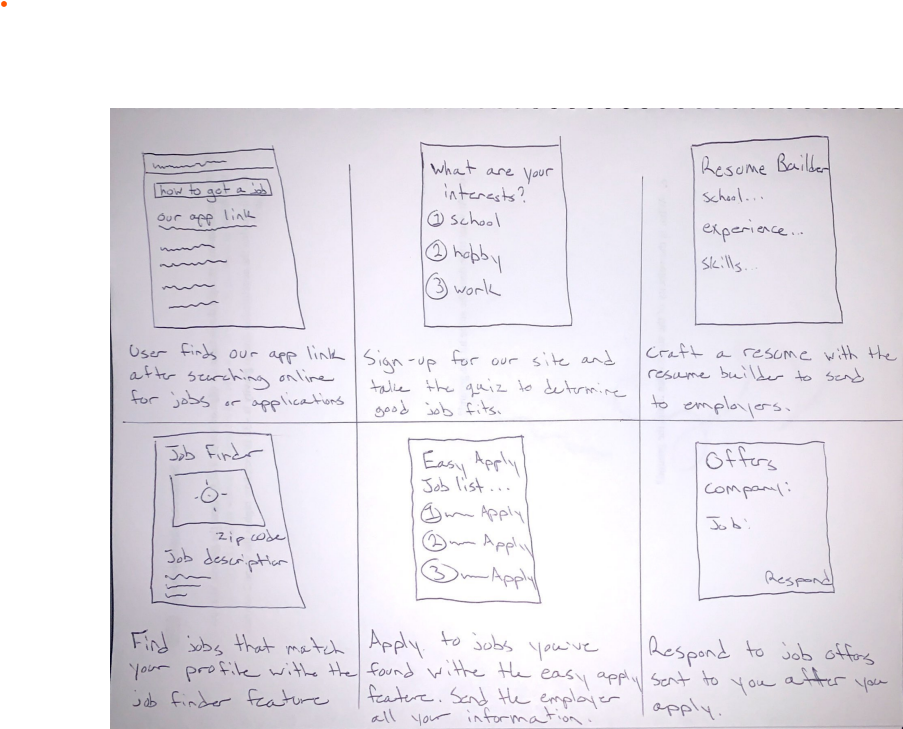 how to get a job
our app link
User finds our app link
after searching online
for jobs or applications
What are your
interests?
1 school
2 hobby
3 work
Sign-up for our site and
take the quiz to determine
good job fits.
Resume Builder
school...
experience...
skills...
Craft a resume with the
resume builder to send
to employers.
Job Finder
Zip code
Job description
Find jobs that match
your profile withe the
job finder feature
Easy Apply
Job list...
1 Apply
2 Apply
3 Apply
Apply to jobs you've
found withe the easy apply
feature. Send the employer
all your information.
Offers
Company:
Job:
Respond
Respond to job offers
sent to you after you
apply.